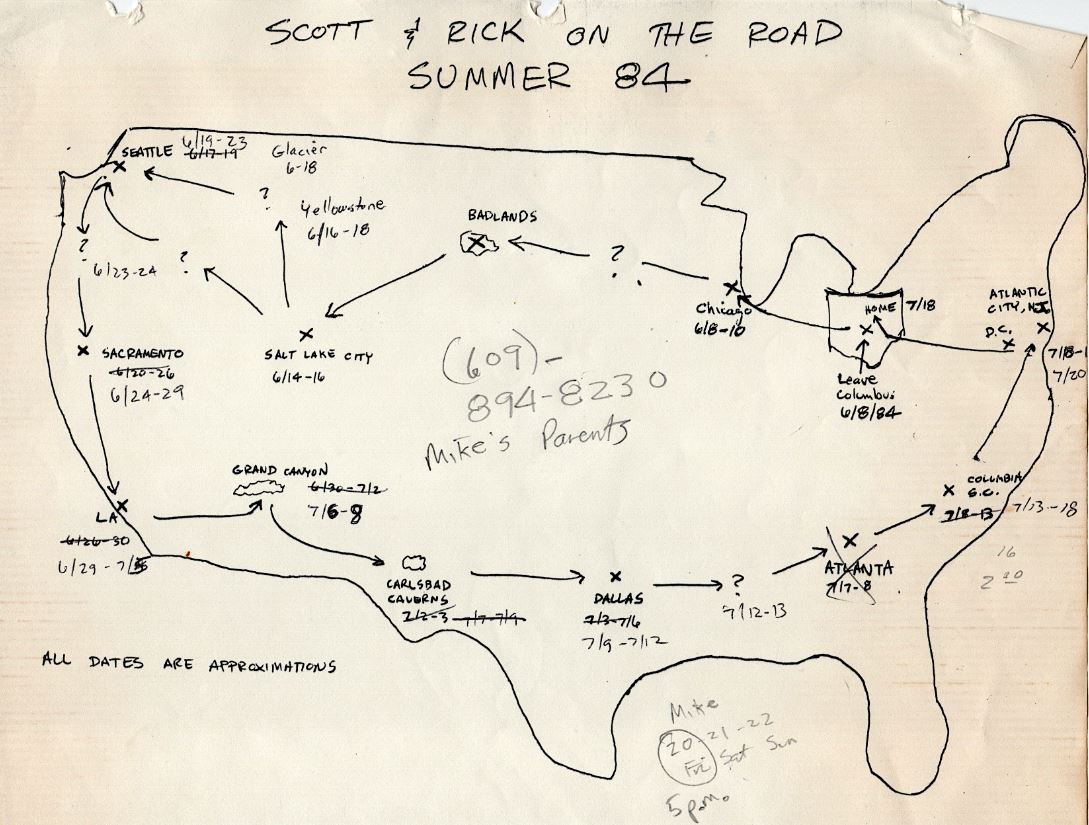 SCOTT & RICK ON THE ROAD
SUMMER 84
SEATTLE
6/19-23
6/17-19
Glacier
6-18
?
Yellowstone
6/16-18
BADLANDS
?
?
6/23-24
?
Chicago
6/8-10
HOME
7/18
ATLANTIC
CITY, NJ
D.C.
7/18-1
7/20
SACRAMENTO
6/20-26
6/24-29
SALT LAKE CITY
6/14-16
(609)-
894-8230
Mike's Parents
Leave
Columbus
6/8/84
GRAND CANYON
6/30-7/2
7/6-8
LA
6/26-30
6/29-7/5
COLUMBIA
S.C.
7/8-13
7/13-18
16
2 00
CARLSBAD
CAVERNS
7/2-3
7/7-7/9
DALLAS
7/3-7/6
7/9-7/12
?
7/12-13
ATLANTA
7/7-8
ALL DATES ARE APPROXIMATIONS
Mike
20-21-22
Fri Sat Sun
5 p.m.